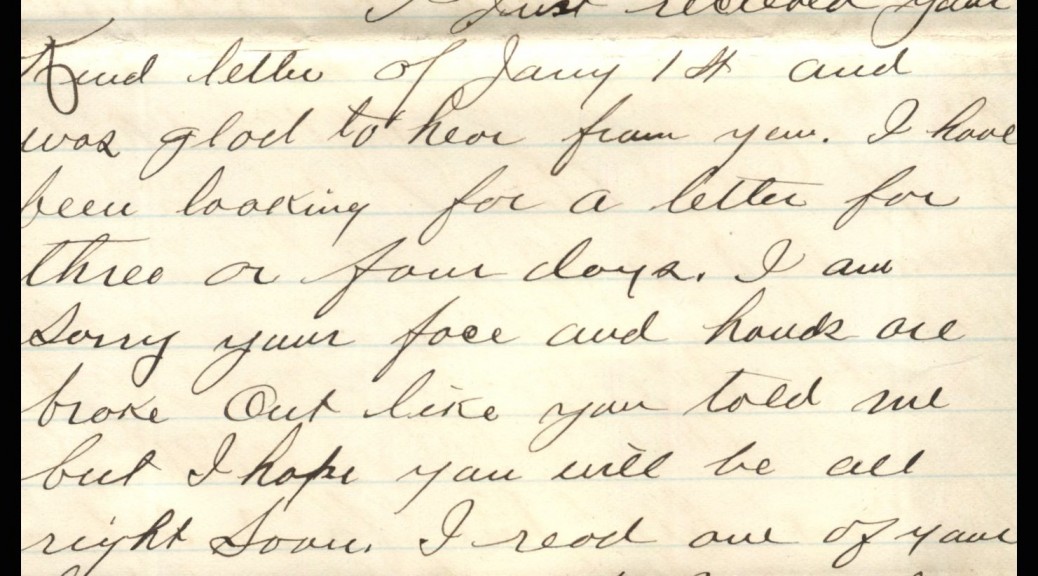 I Just received your
Kind letter of Jany 14 and
was glad to hear from you. I have
been looking for a letter for
three or four days. I am
Sorry your face and hands are
broke Out like you told me
but I hope you will be all
right Soon. I read one of your